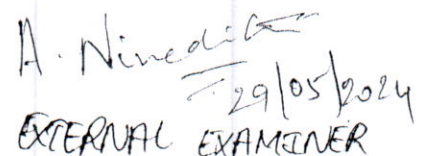 A. Nivedita
29/05/2024
EXTERNAL EXAMINER